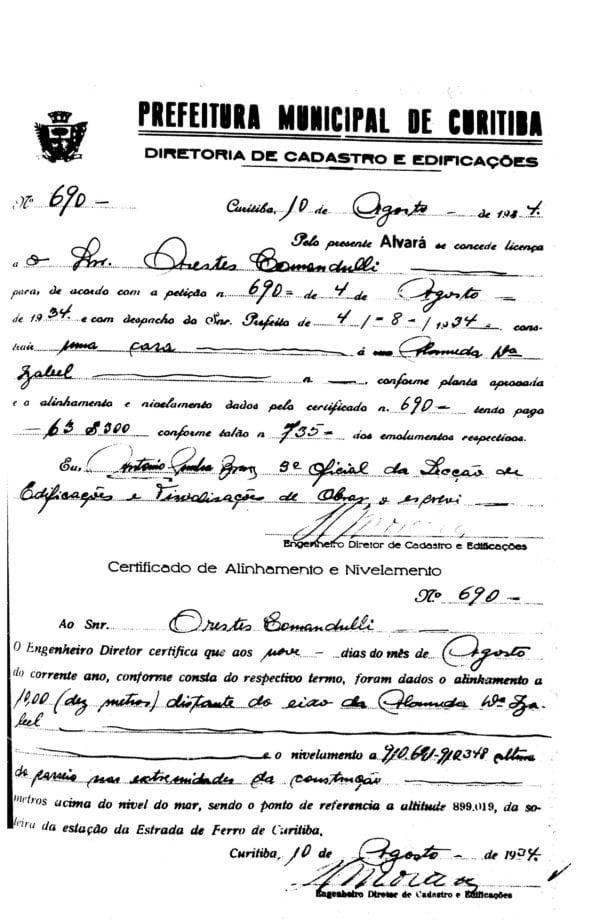 PREFEITURA MUNICIPAL DE CURITIBA
DIRETORIA DE CADASTRO E EDIFICAÇÕES
Nº 690 —
Curitiba, 10 de Agosto — de 1934.
Pelo presente Alvará se concede licença
a o Snr. Orestes Comandulli
para, de acordo com a petição n. 690 = de 4 de Agosto —
de 1934. e com despacho do Snr. Prefeito de 4 / - 8 - / 1934 = cons-
truir uma casa á Alameda Dª
Izabel n — , conforme planta aprovada
e o alinhamento e nivelamento dados pelo certificado n. 690 — tendo pago
— 63 $ 300 conforme talão n 735 - dos emolumentos respectivos.
Eu, Antonio 3º Oficial da Secção de
Edificações e Fiscalisações de Obras, o escrevi —
Engenheiro Diretor de Cadastro e Edificações
Certificado de Alinhamento e Nivelamento
Nº 690 —
Ao Snr. Orestes Comandulli
O Engenheiro Diretor certifica que aos nove — dias do mês de Agosto
do corrente ano, conforme consta do respectivo termo, foram dados o alinhamento a
10,00 (dez metros) distante do eixo da Alameda Dª Iza-
bel
e o nivelamento a 910.691-910.348 altura
do passeio nas extremidades da construção
metros acima do nivel do mar, sendo o ponto de referencia a altitude 899.019, da so-
leira da estação da Estrada de Ferro de Curitiba.
Curitiba, 10 de Agosto — de 1934.
Engenheiro Diretor de Cadastro e Edificações